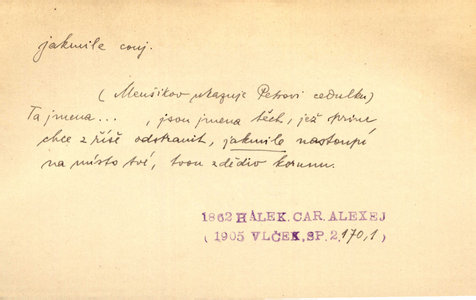 jakmile conj.
(Menšikov ukazuje Petrovi cedulku)
Ta jmena... , jsou jmena těch, jež princ
chce z říše odstranit, jakmile nastoupí
na místo tvé, tvou zdědiv korunu.
1862 HÁLEK. CAR. ALEXEJ
(1905 VLČEK, SP. 2, 170, 1)